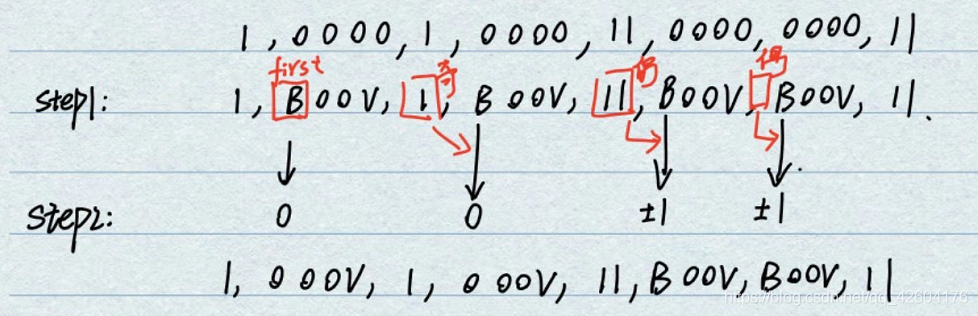 1 , 0 0 0 0 , 1 , 0 0 0 0 , 1 1 , 0 0 0 0 , 0 0 0 0 , 1 1
first 奇 偶 偶
step1: 1 , B 0 0 V , 1 , B 0 0 V , 1 1 , B 0 0 V , B 0 0 V , 1 1 .
step2: 0 0 ±1 ±1
1 , 0 0 0 V , 1 , 0 0 0 V , 1 1 , B 0 0 V , B 0 0 V , 1 1
https://blog.csdn.net/qq_42604176